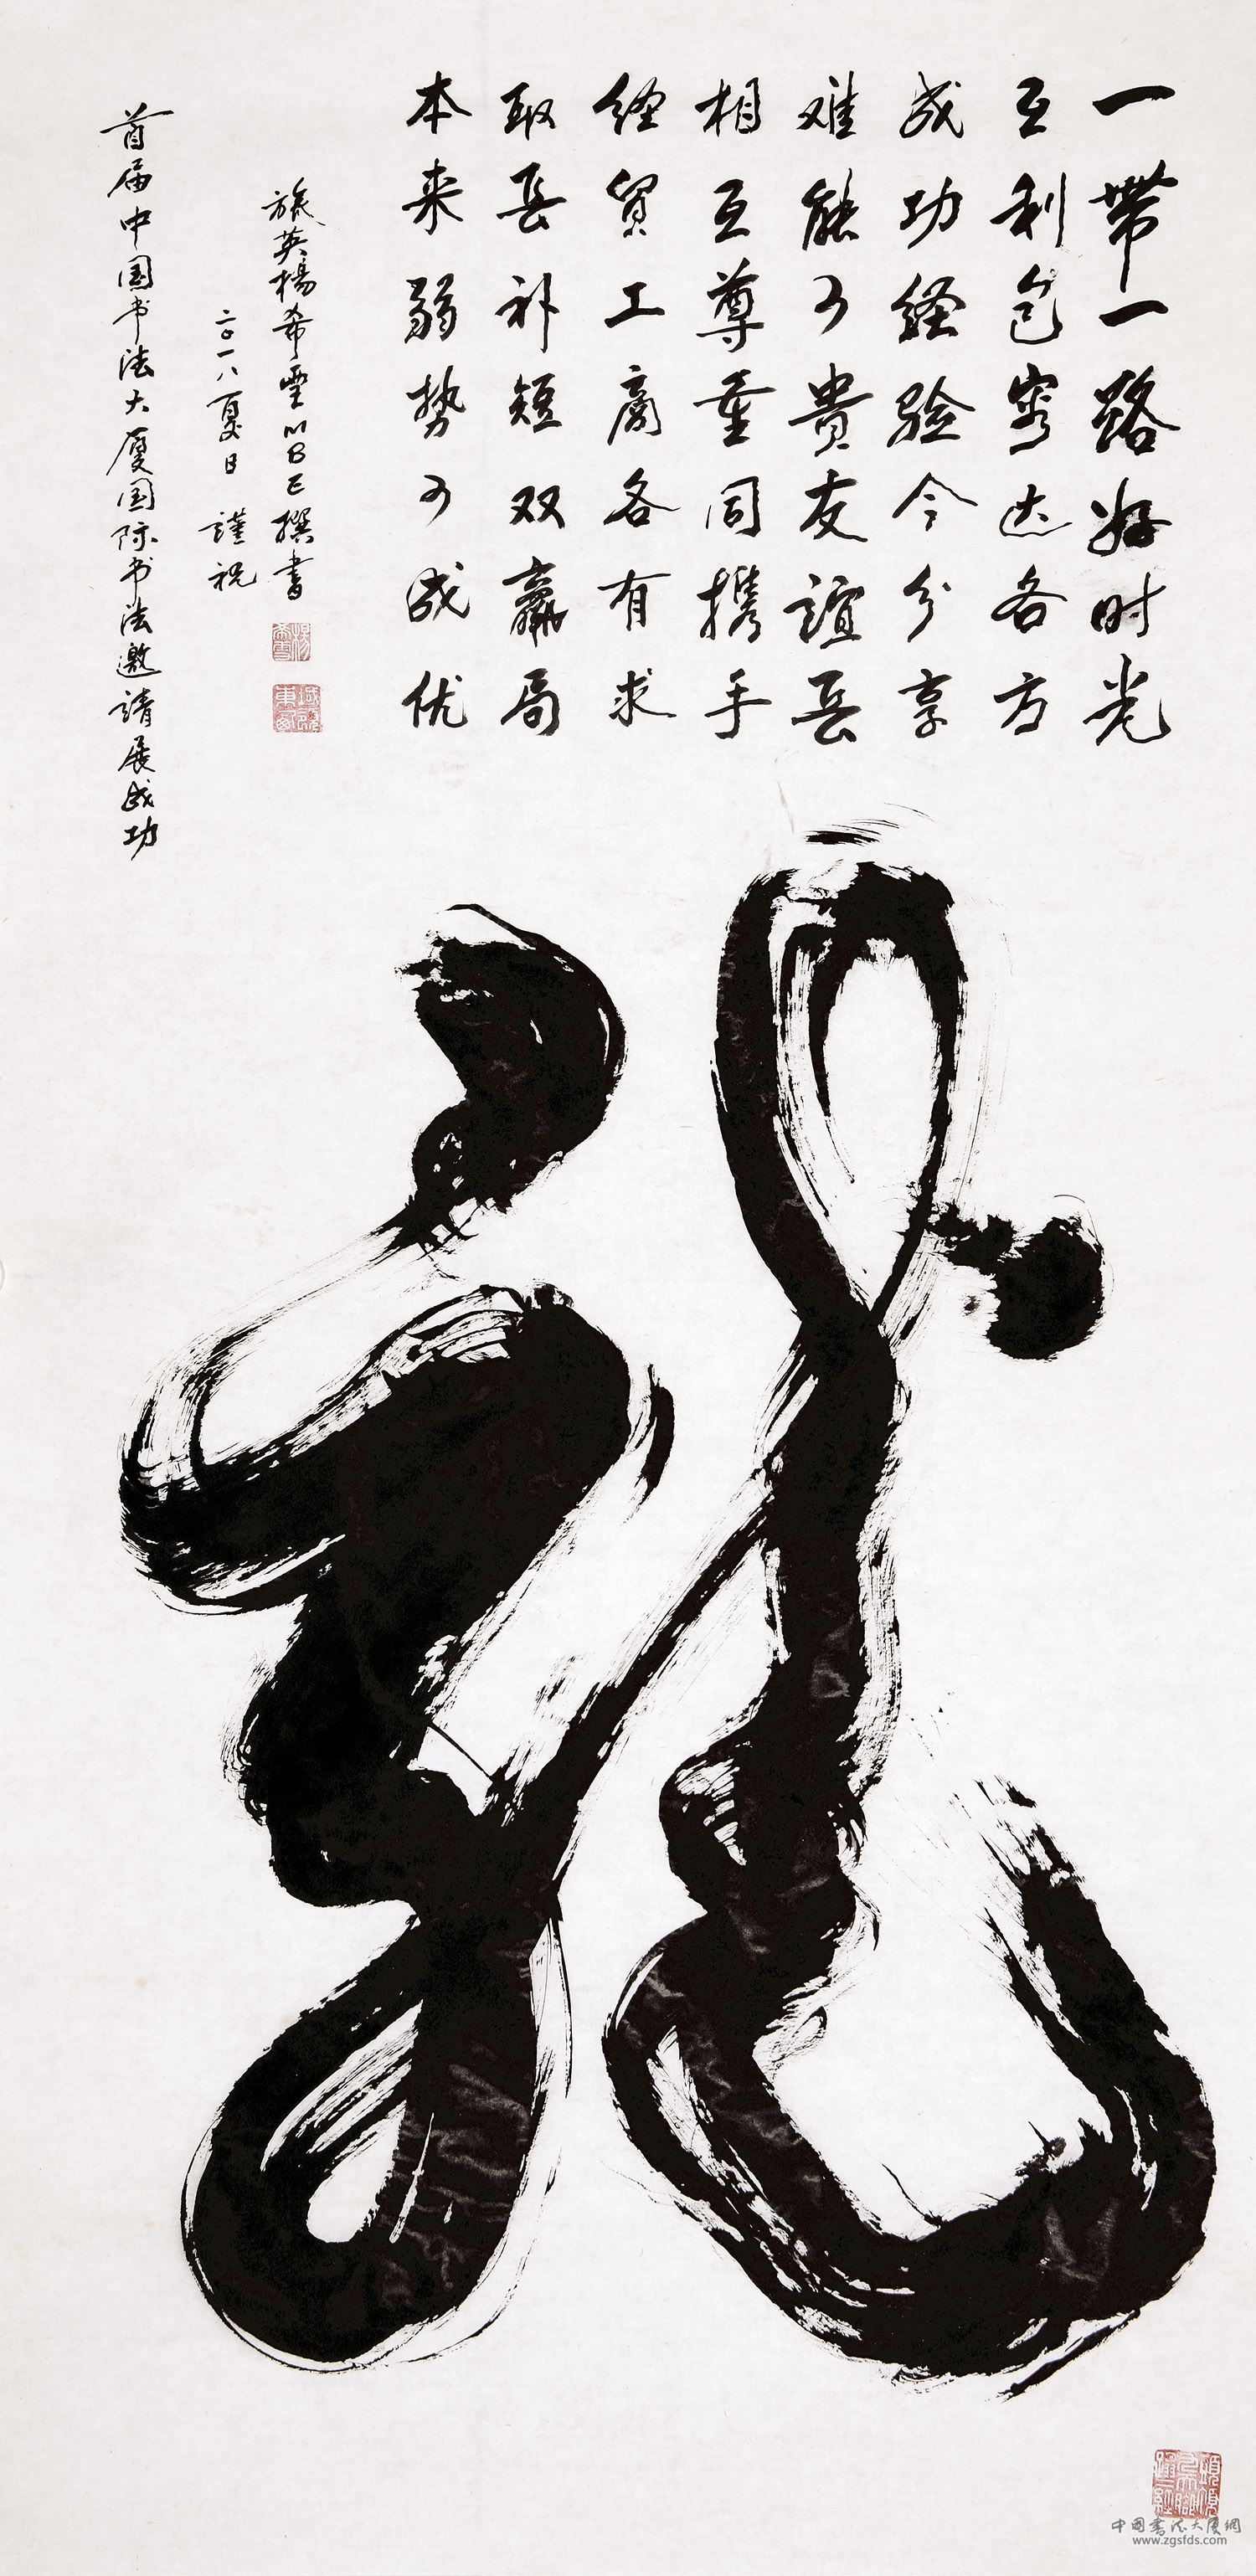 一帶一路好时光
互利包容达各方
成功经验今分享
难能可贵友谊长
相互尊重同携手
经贸工商各有求
取长补短双赢局
本来弱势可成优
旅英楊希雪MBE撰书
二〇一八夏日 謹祝
首届中国书法大厦国际书法邀請展成功
龙
中国書法大厦網
www.zgsfds.com